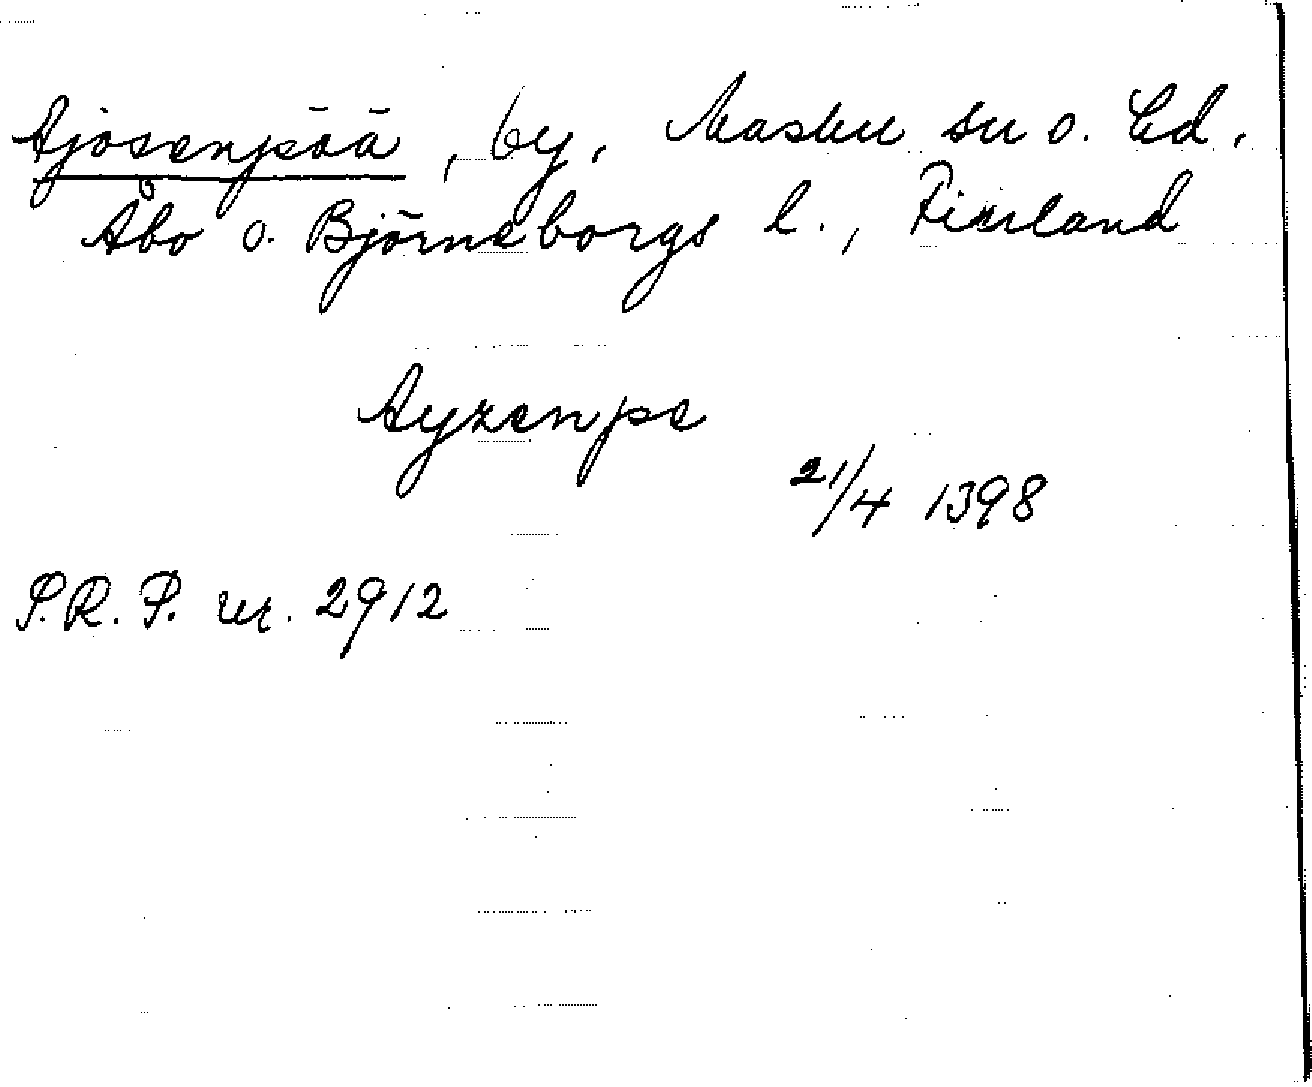 Ajosenpää, by, Masku sn o. hd,
Åbo o. Björneborgs l., Finland
Ayzenpe
21/4 1398
S.R.P. nr. 2912